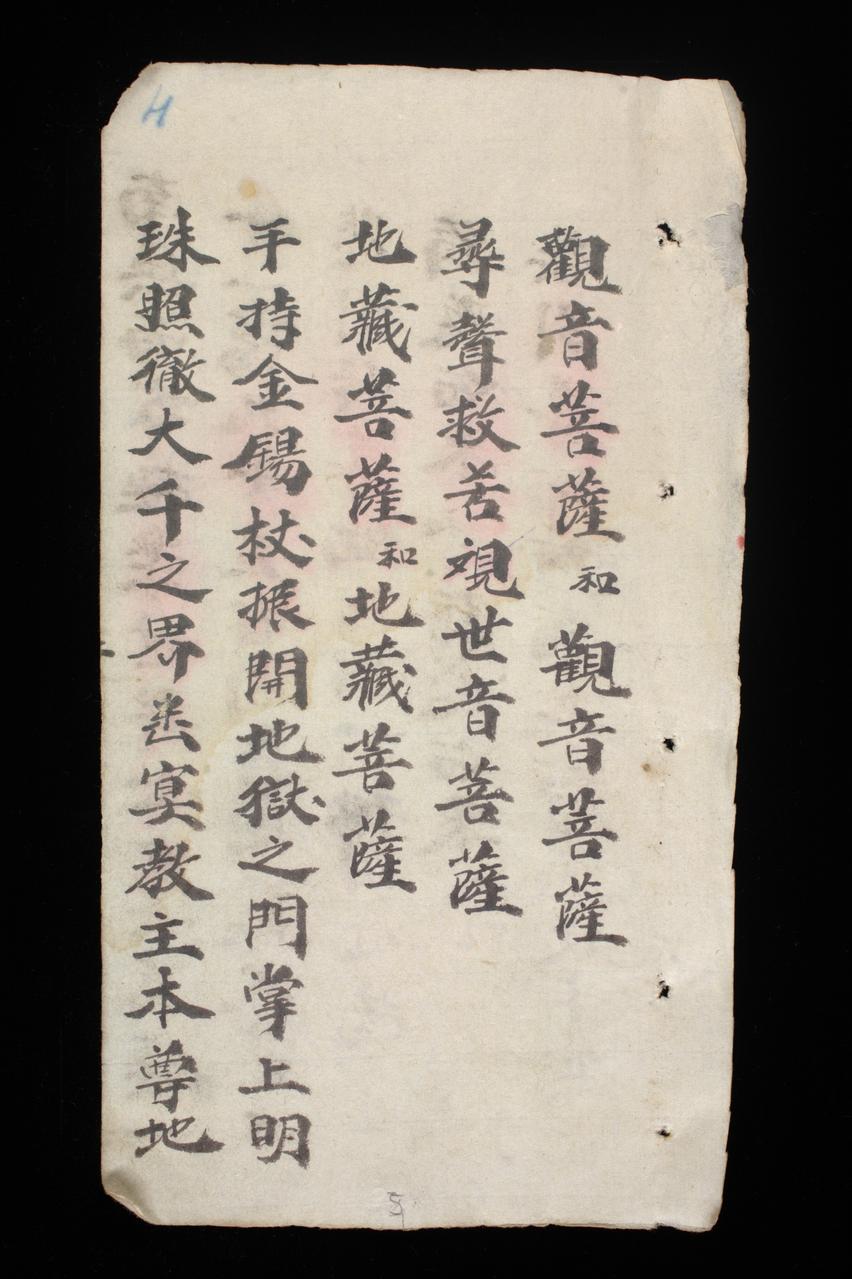 觀音菩薩和觀音菩薩
尋聲救苦覌世音菩薩
地藏菩薩和地藏菩薩
手持金錫杖振開地獄之門掌上明
珠照徹大千之界幽㝠教主本尊地
H
5